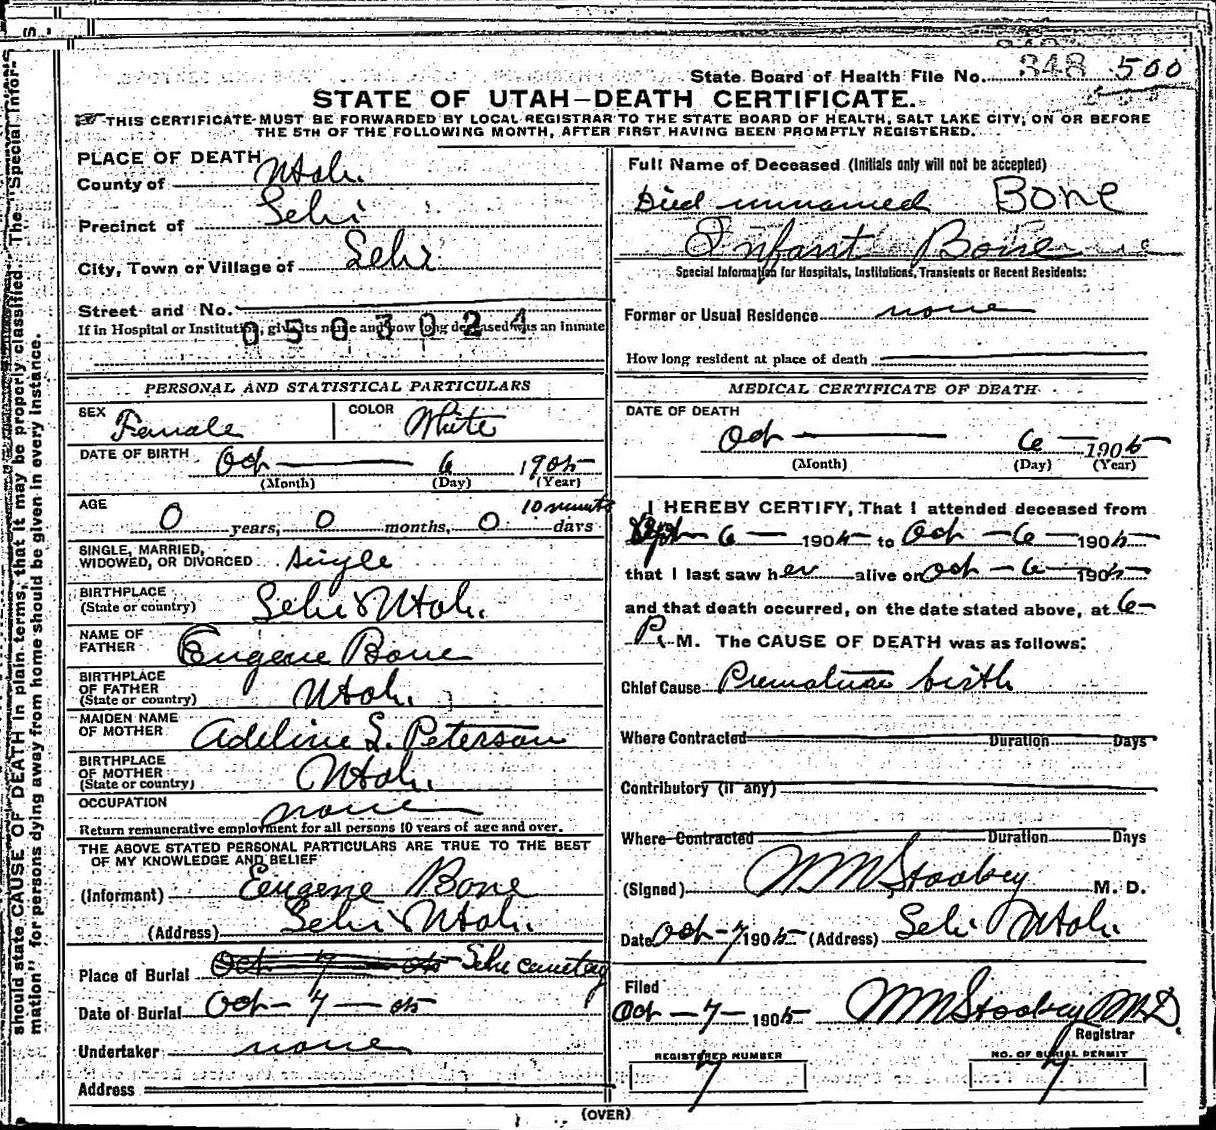 State Board of Health File No. 348 500
STATE OF UTAH—DEATH CERTIFICATE.
THIS CERTIFICATE MUST BE FORWARDED BY LOCAL REGISTRAR TO THE STATE BOARD OF HEALTH, SALT LAKE CITY, ON OR BEFORE
THE 5TH OF THE FOLLOWING MONTH, AFTER FIRST HAVING BEEN PROMPTLY REGISTERED.
should state CAUSE OF DEATH in plain terms, that it may be properly classified. The "Special Infor-
mation" for persons dying away from home should be given in every instance.
PLACE OF DEATH
County of Utah.
Precinct of Lehi
City, Town or Village of Lehi
Street and No.
If in Hospital or Institution, give its name and how long deceased was an inmate
0503024
PERSONAL AND STATISTICAL PARTICULARS
SEX Female COLOR White
DATE OF BIRTH Oct 6 1905
(Month) (Day) (Year)
AGE 0 years, 0 months, 0 days 10 minutes
SINGLE, MARRIED,
WIDOWED, OR DIVORCED single
BIRTHPLACE
(State or country) Lehi Utah.
NAME OF
FATHER Eugene Bone
BIRTHPLACE
OF FATHER
(State or country) Utah.
MAIDEN NAME
OF MOTHER Adeline S. Peterson
BIRTHPLACE
OF MOTHER
(State or country) Utah.
OCCUPATION none
Return remunerative employment for all persons 10 years of age and over.
THE ABOVE STATED PERSONAL PARTICULARS ARE TRUE TO THE BEST
OF MY KNOWLEDGE AND BELIEF
(Informant) Eugene Bone
(Address) Lehi Utah.
Place of Burial Oct 7 05 Lehi cemetery
Date of Burial Oct - 7 - 05
Undertaker none
Address
Full Name of Deceased (Initials only will not be accepted)
Died unnamed Bone
Infant Bone
Special Information for Hospitals, Institutions, Transients or Recent Residents:
Former or Usual Residence none
How long resident at place of death
MEDICAL CERTIFICATE OF DEATH
DATE OF DEATH
Oct 6 1905
(Month) (Day) (Year)
I HEREBY CERTIFY, That I attended deceased from
6 1905 to Oct - 6 - 1905
that I last saw her alive on Oct - 6 - 1905
and that death occurred, on the date stated above, at 6-
P. M. The CAUSE OF DEATH was as follows:
Chief Cause Premature birth
Where Contracted Duration Days
Contributory (if any)
Where Contracted Duration Days
(Signed) M. D.
Date Oct - 7 1905 (Address) Lehi Utah.
Filed
Oct - 7 - 1905 M.D.
Registrar
REGISTERED NUMBER
7
NO. OF BURIAL PERMIT
7
(OVER)